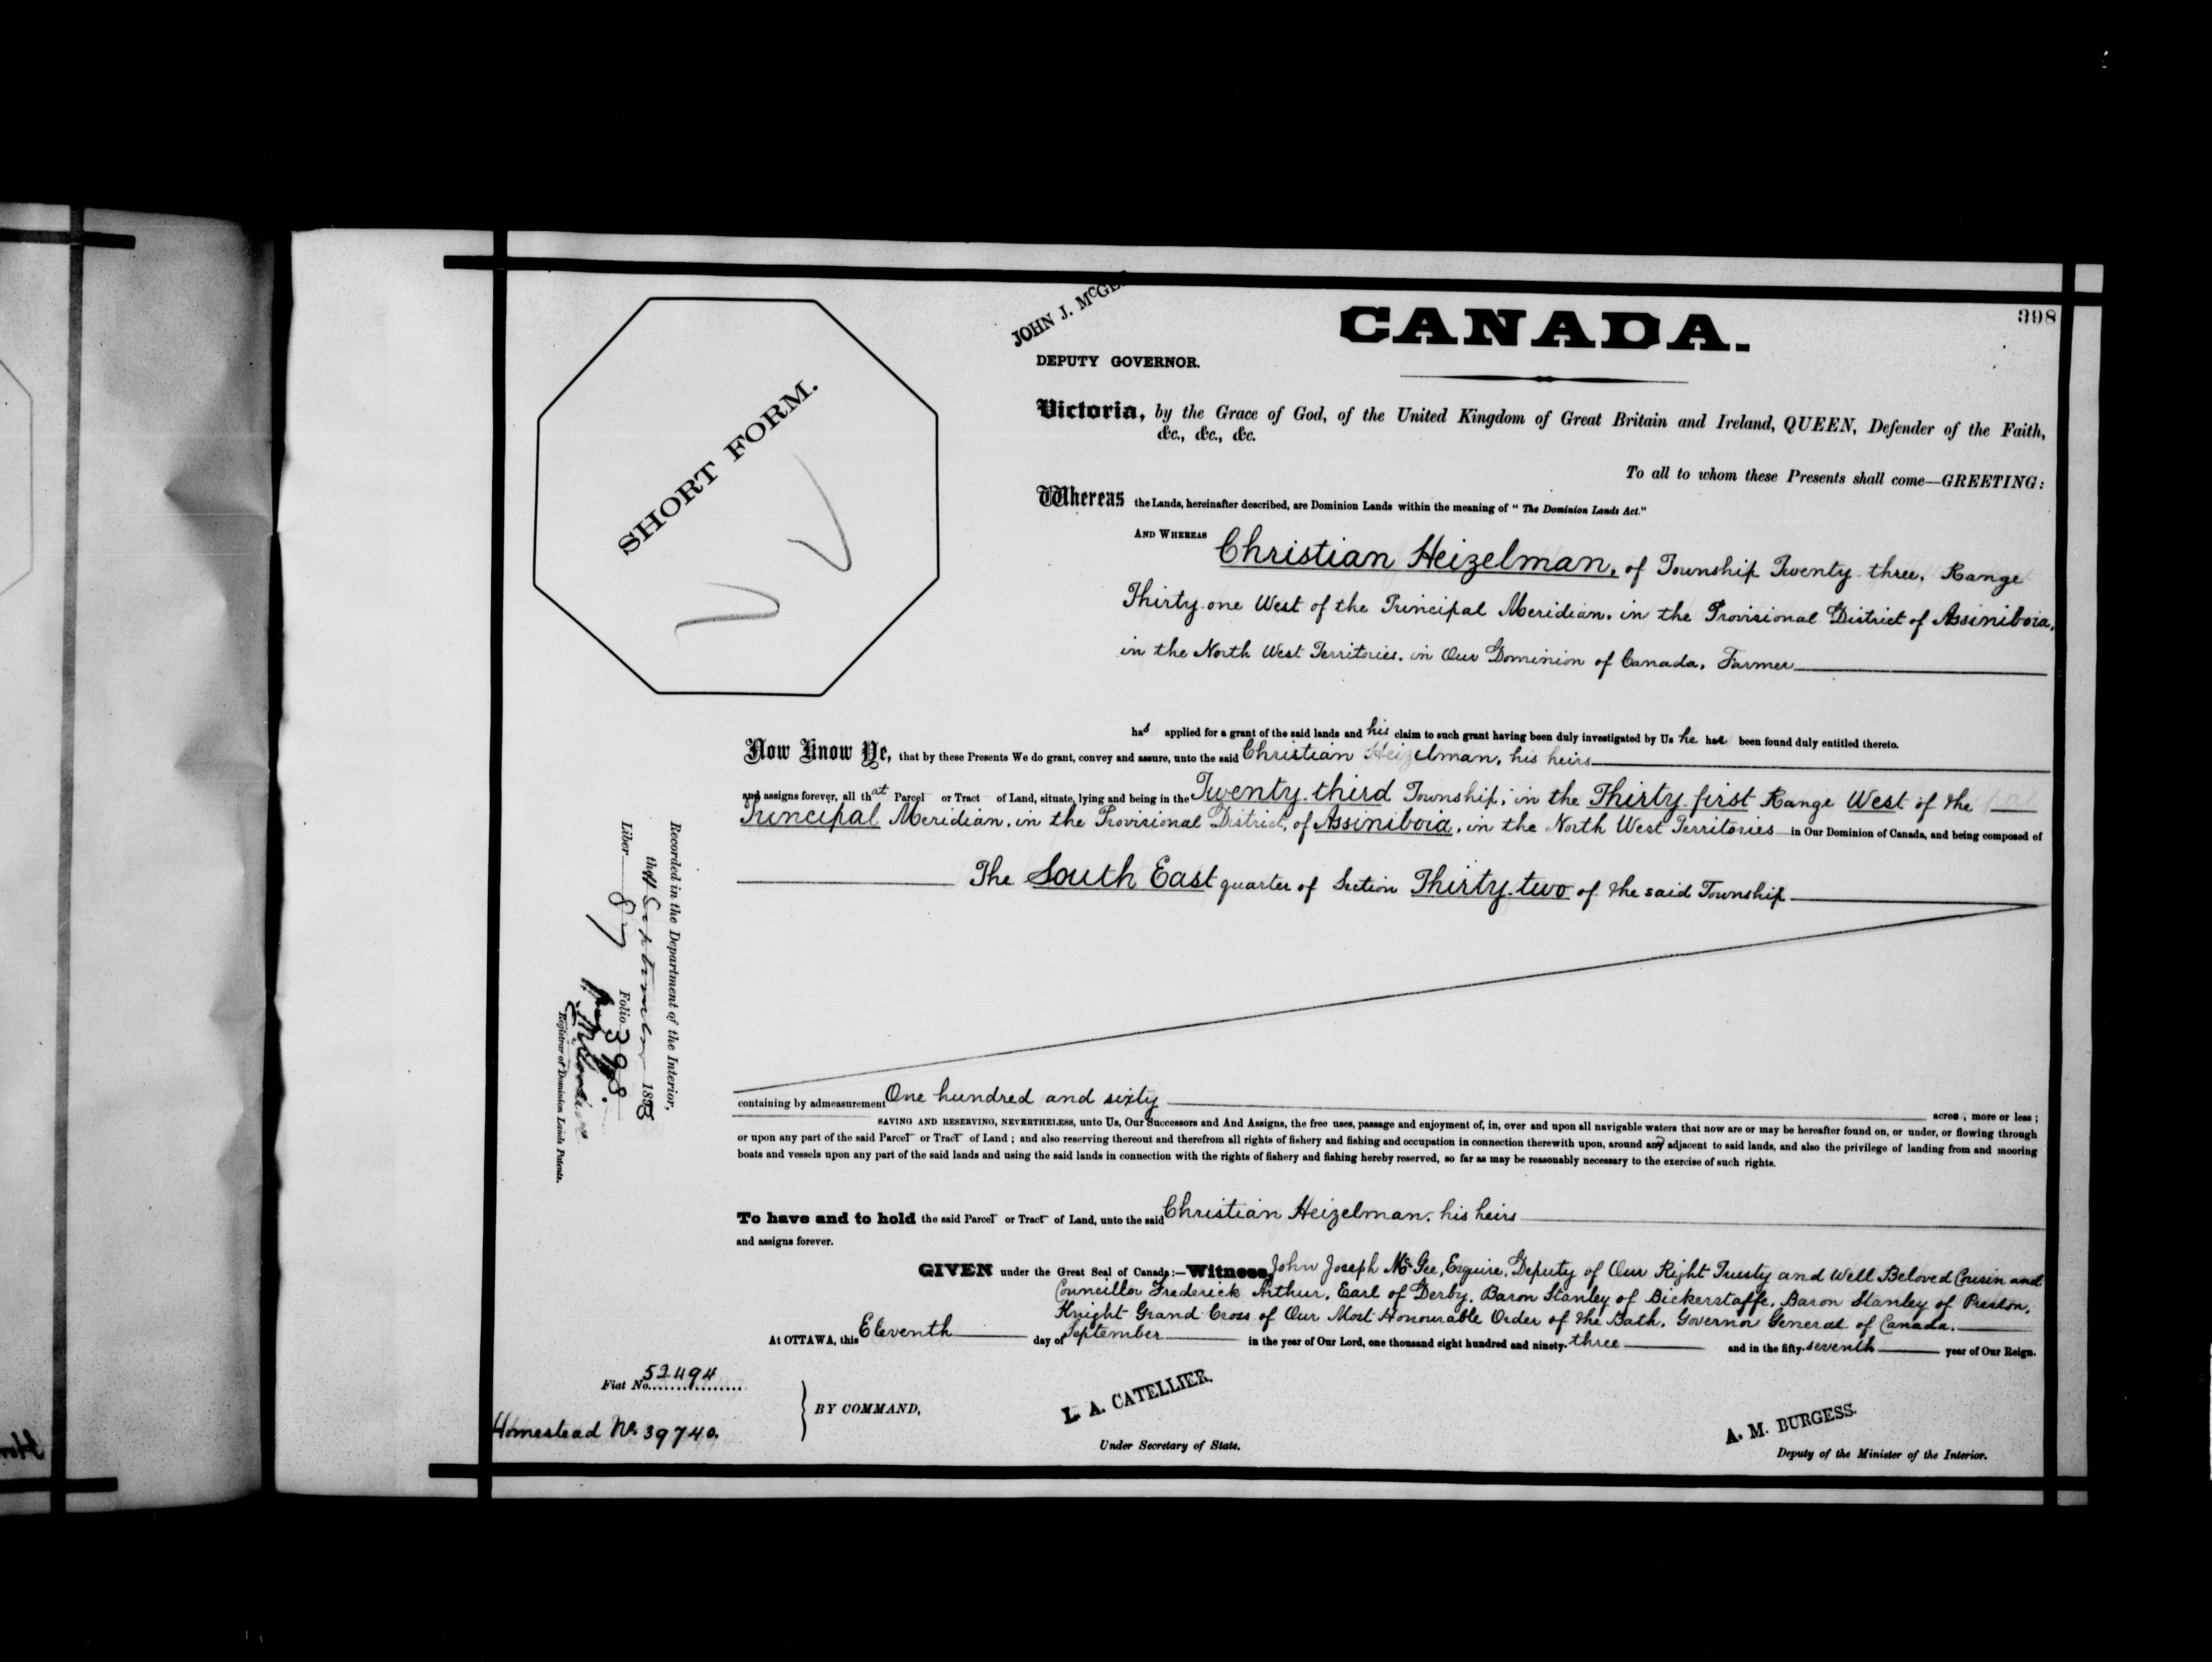 398
JOHN J. McGE
CANADA.
DEPUTY GOVERNOR.
SHORT FORM.
Victoria, by the Grace of God, of the United Kingdom of Great Britain and Ireland, QUEEN, Defender of the Faith,
&c., &c., &c.
To all to whom these Presents shall come—GREETING:
Whereas the Lands, hereinafter described, are Dominion Lands within the meaning of "The Dominion Lands Act."
AND WHEREAS Christian Heizelman, of Township Twenty three, Range
Thirty-one West of the Principal Meridian, in the Provisional District of Assiniboia,
in the North West Territories, in Our Dominion of Canada, Farmer
has applied for a grant of the said lands and his claim to such grant having been duly investigated by Us he has been found duly entitled thereto.
Now Know Ye, that by these Presents We do grant, convey and assure, unto the said Christian Heizelman, his heirs
and assigns forever, all that Parcel or Tract of Land, situate, lying and being in the Twenty-third Township, in the Thirty-first Range West of the
Principal Meridian, in the Provisional District, of Assiniboia, in the North West Territories in Our Dominion of Canada, and being composed of
The South East quarter of Section Thirty-two of the said Township
containing by admeasurement One hundred and sixty acres, more or less;
SAVING AND RESERVING, NEVERTHELESS, unto Us, Our Successors and And Assigns, the free uses, passage and enjoyment of, in, over and upon all navigable waters that now are or may be hereafter found on, or under, or flowing through
or upon any part of the said Parcel or Tract of Land; and also reserving thereout and therefrom all rights of fishery and fishing and occupation in connection therewith upon, around and adjacent to said lands, and also the privilege of landing from and mooring
boats and vessels upon any part of the said lands and using the said lands in connection with the rights of fishery and fishing hereby reserved, so far as may be reasonably necessary to the exercise of such rights.
To have and to hold the said Parcel or Tract of Land, unto the said Christian Heizelman, his heirs
and assigns forever.
GIVEN under the Great Seal of Canada:—Witness, John Joseph McGee, Esquire, Deputy of Our Right Trusty and Well Beloved Cousin and
Councillor Frederick Arthur, Earl of Derby, Baron Stanley of Bickerstaffe, Baron Stanley of Preston,
Knight Grand Cross of Our Most Honourable Order of the Bath, Governor General of Canada.
At OTTAWA, this Eleventh day of September in the year of Our Lord, one thousand eight hundred and ninety-three and in the fifty-seventh year of Our Reign.
Fiat No. 52494
Homestead No. 39740.
BY COMMAND,
L. A. CATELLIER.
Under Secretary of State.
A. M. BURGESS.
Deputy of the Minister of the Interior.
Recorded in the Department of the Interior,
September 1893
Liber 87 Folio 398
Registrar of Dominion Lands Patents.